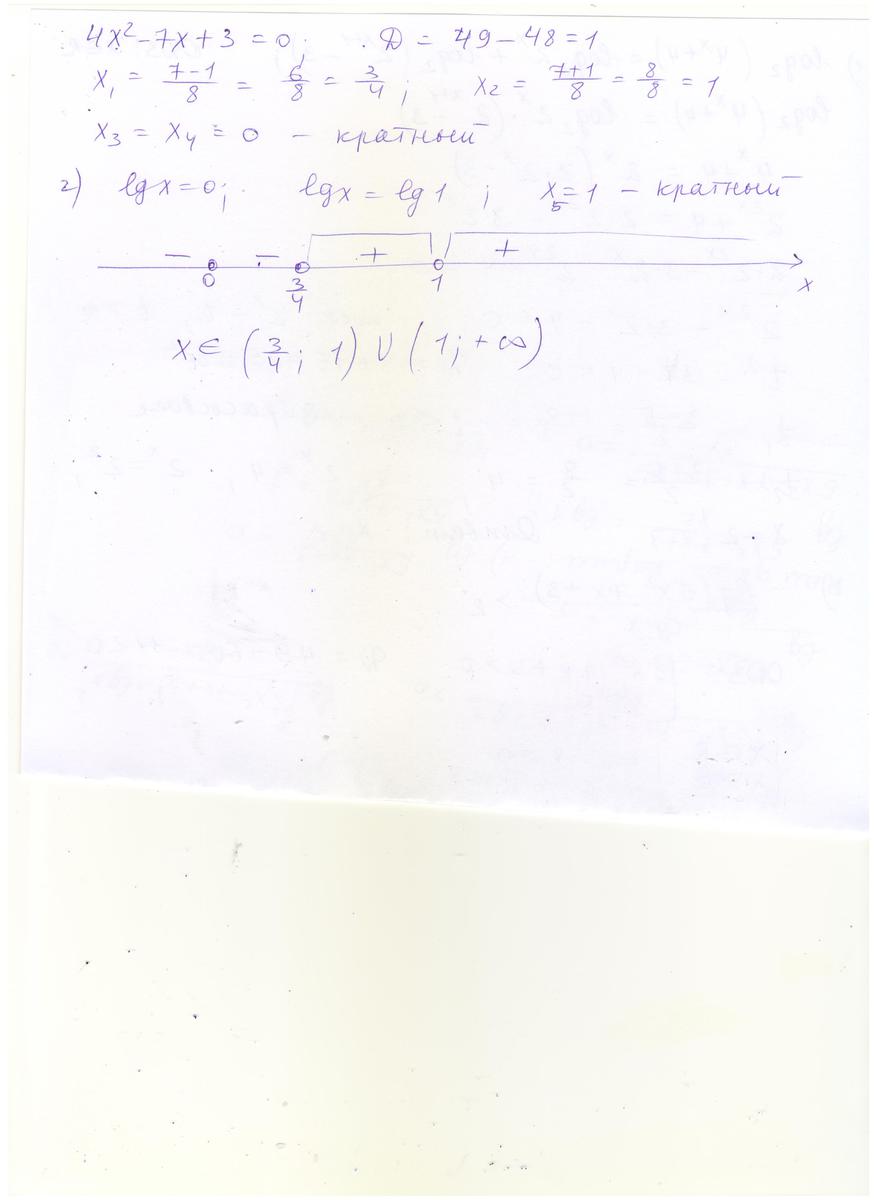 4x² - 7x + 3 = 0; D = 49 - 48 = 1
x₁ = (7-1)/8 = 6/8 = 3/4; x₂ = (7+1)/8 = 8/8 = 1
x₃ = x₄ = 0 - кратный
2) lgx = 0; lgx = lg1; x₅ = 1 - кратный
- - + +
0 3/4 1 x
x ∈ (3/4; 1) ∪ (1; +∞)